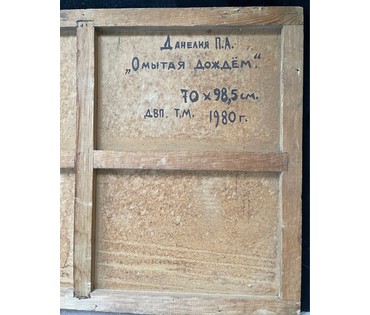 Данелия П.А.
„Омытая дождём“.
70 x 98,5 см.
ДВП. Т.М. 1980 г.